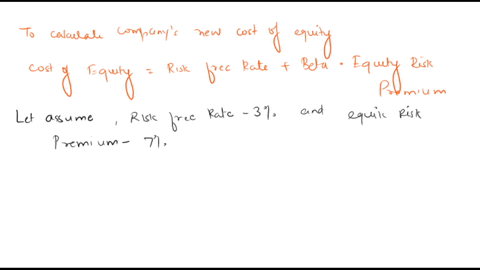 To calculate Company's new cost of equity
Cost of Equity = Risk free Rate + Beta · Equity Risk
Premium
Let assume, Risk free Rate - 3%. and equity Risk
Premium - 7%.